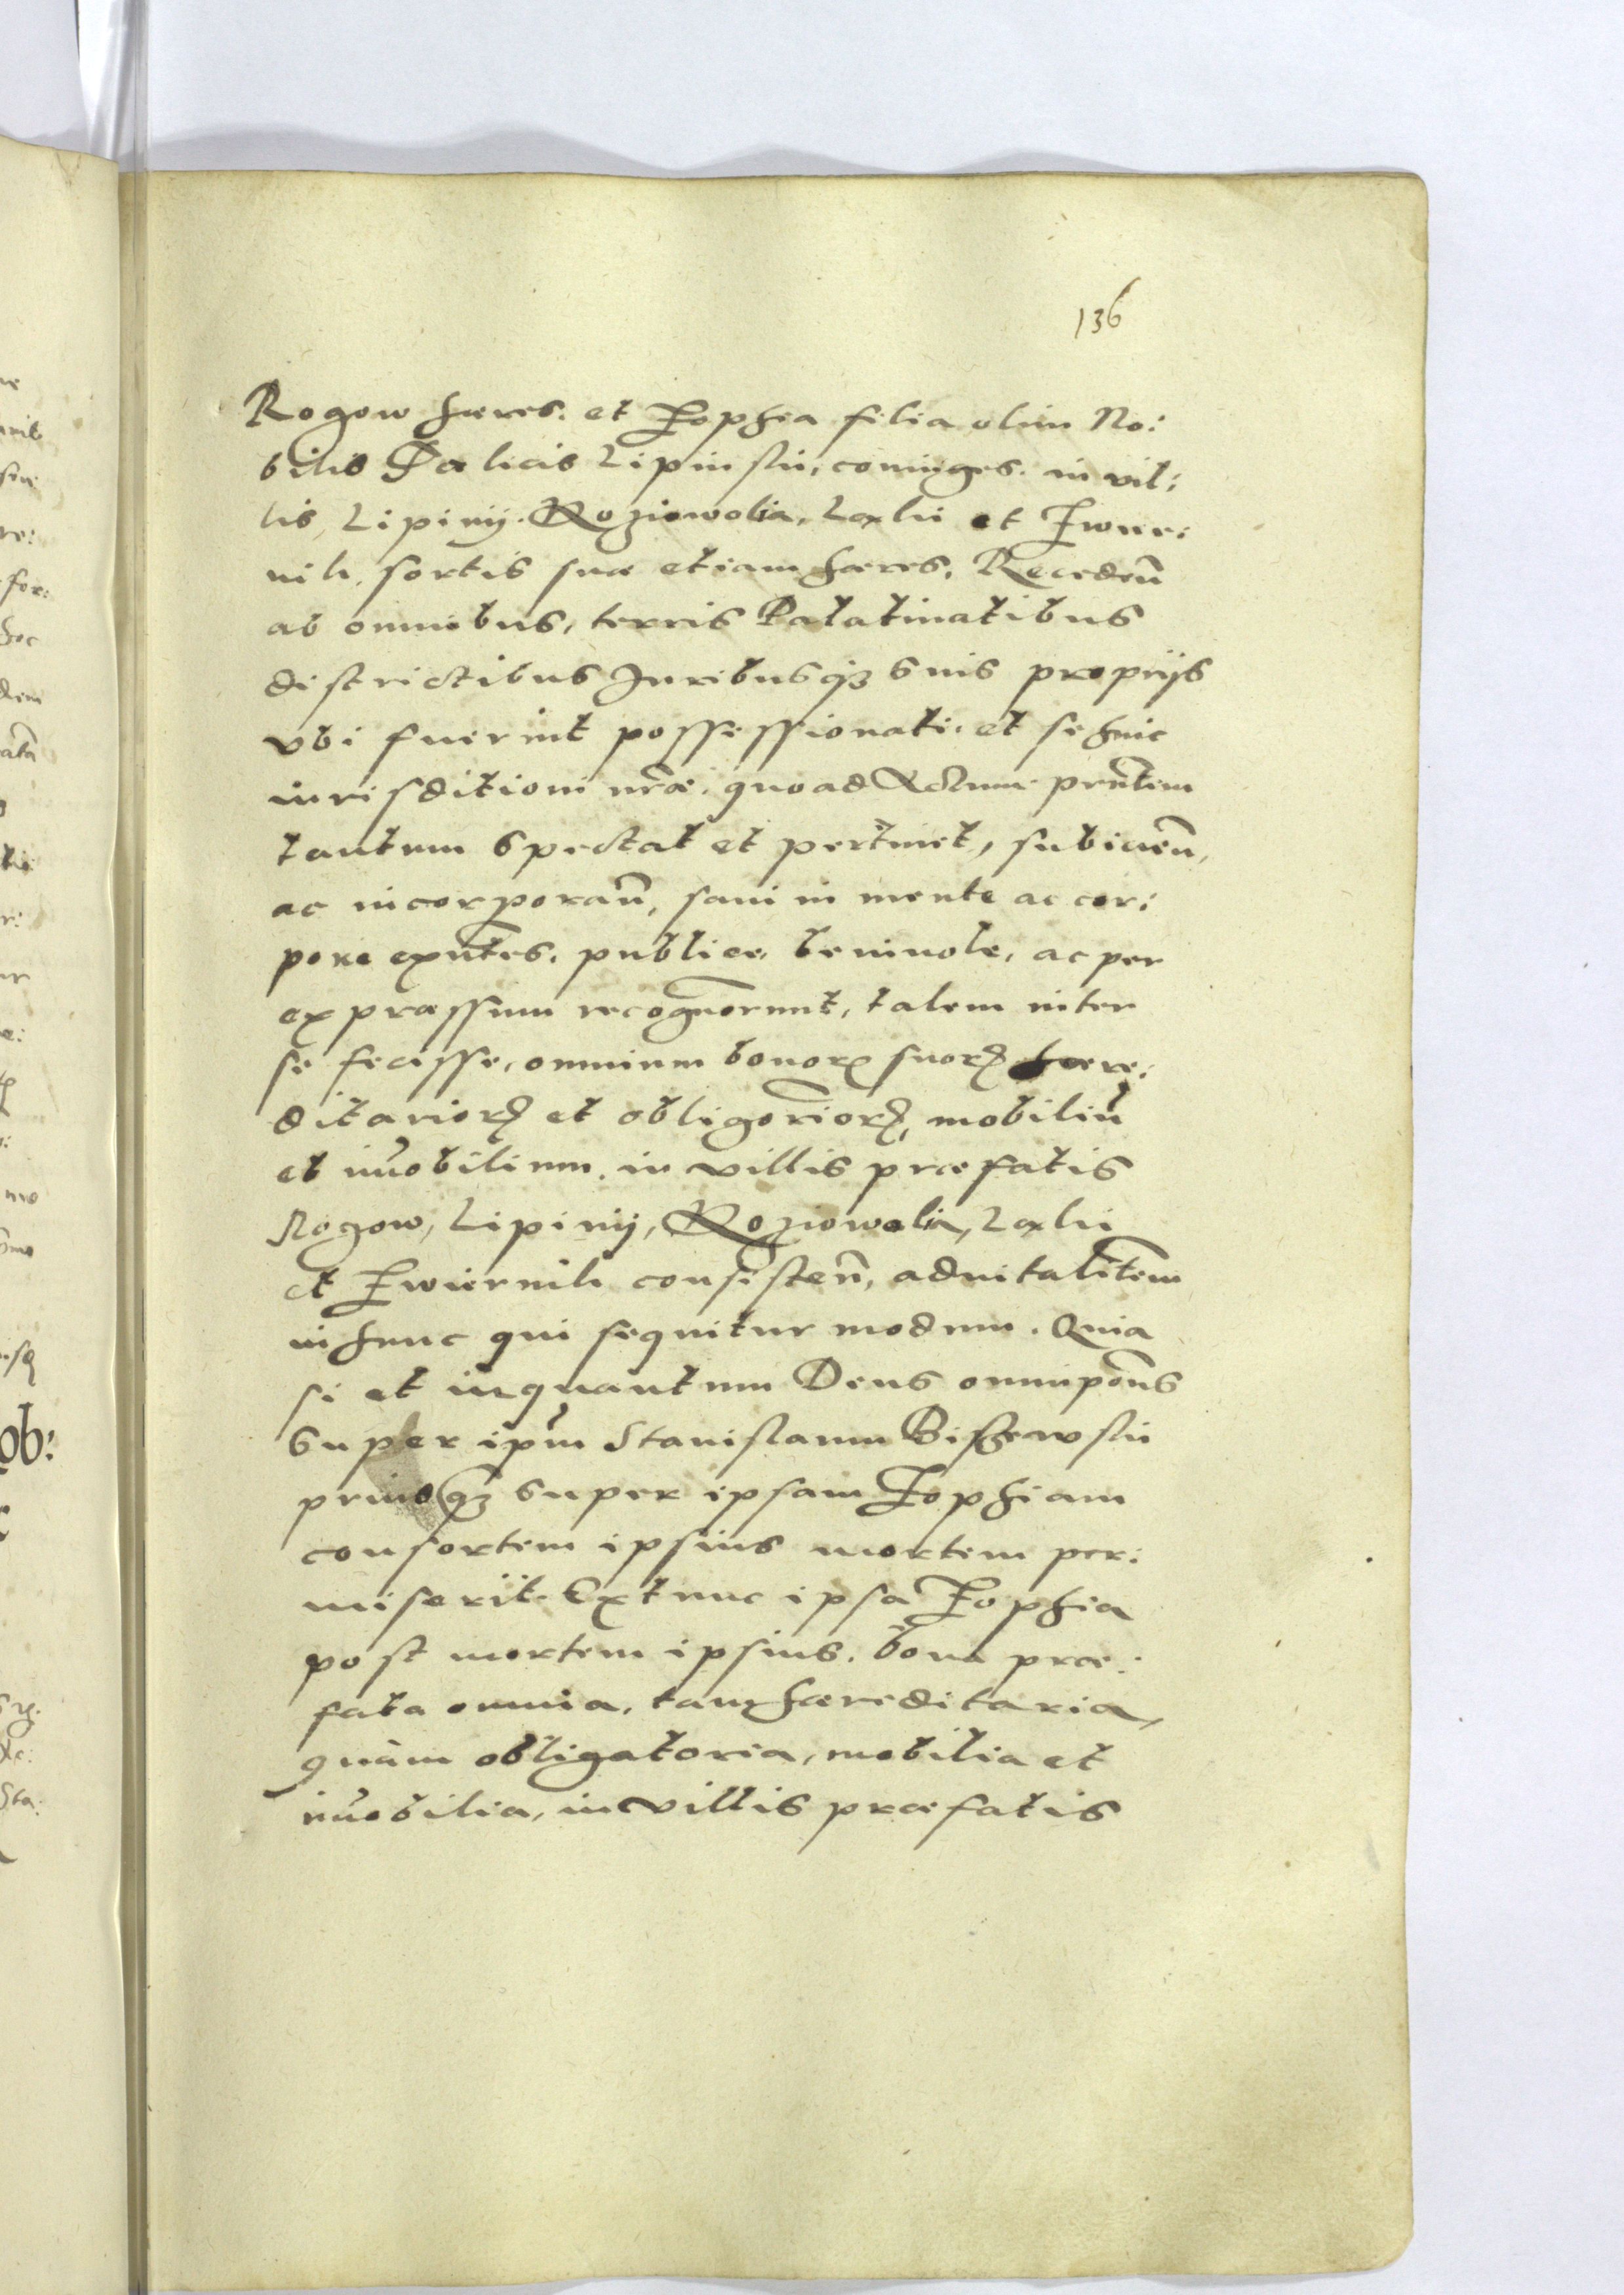 136
Rogow hæres. et Zophia filia olim No:
bilis Fælicis Lipinski, coniuges. in vil:
lis, Lipiny. Roziowolia, Laski et Zwier:
nik, sortis suæ etiam hæres, Recedeñ
ab omnibus, terris Palatinatibus
districtibus Juribusqʒ suis proprijs
vbi fuerint possessionati. et se huic
iurisditioni nr̃æ. quo ad Actum prñtem
tantum spectat et pertinet, subicieñ,
ac incorporañ, sani in mente ac cor:
pore exñtes. publice, beniuole, ac per
expræssum recognorunt, talem inter
se fecisse, omnium bonorꝝ suorꝝ hære:
ditariorꝝ et obligoriorꝝ, mobiliũ
et im̃obilium. in villis præfatis
Rogow, Lipiny, Roziowolia, Laski
et Zwiernik consisteñ, aduitalitem
in hunc qui sequitur modum. Quia
si et inquantum Deus omnipoñs
super ipm̃ Stanislaum Biskewski
priusqʒ super ipsam Zophiam
consortem ipsius mortem per:
miserit. Extunc ipsa Zophia
post mortem ipsius. bona præ:
fata omnia, tam hæreditaria,
quàm obligatoria, mobilia et
im̃obilia, in villis præfatis